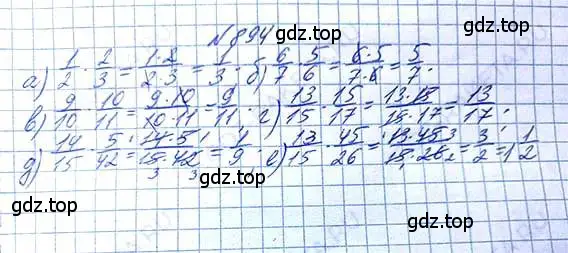 gdz.top
№894
а) 1/2 · 2/3 = 1·2/2·3 = 1/3. б) 6/7 · 5/6 = 6·5/7·6 = 5/7.
в) 9/10 · 10/11 = 9·10/10·11 = 9/11. г) 13/15 · 15/17 = 13·15/15·17 = 13/17.
д) 14/15 · 5/42 = 14·5/15·42 = 1/9. е) 13/15 · 45/26 = 13·45/15·26 = 3/2 = 1 1/2
gdz.top
gdz.top